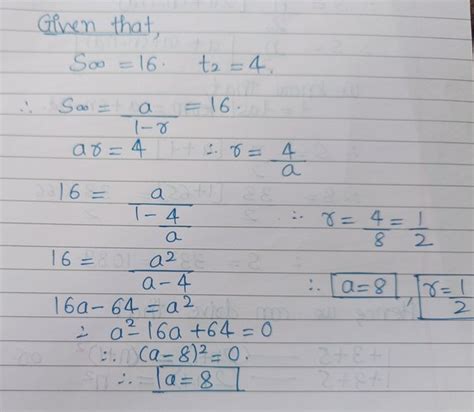 Given that,
S∞ = 16. t₂ = 4.
∴ S∞ = a/(1-r) = 16.
ar = 4 ∴ r = 4/a
16 = a/(1 - 4/a) ∴ r = 4/8 = 1/2
16 = a²/(a-4) ∴ a=8, r=1/2
16a - 64 = a²
∴ a² - 16a + 64 = 0
∴ (a-8)² = 0.
∴ a=8